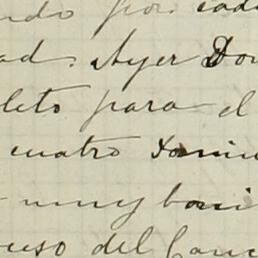 ndo por cada
ad. Ayer Do
leto para el
cuatro Domin
muy boni
uso del Canc